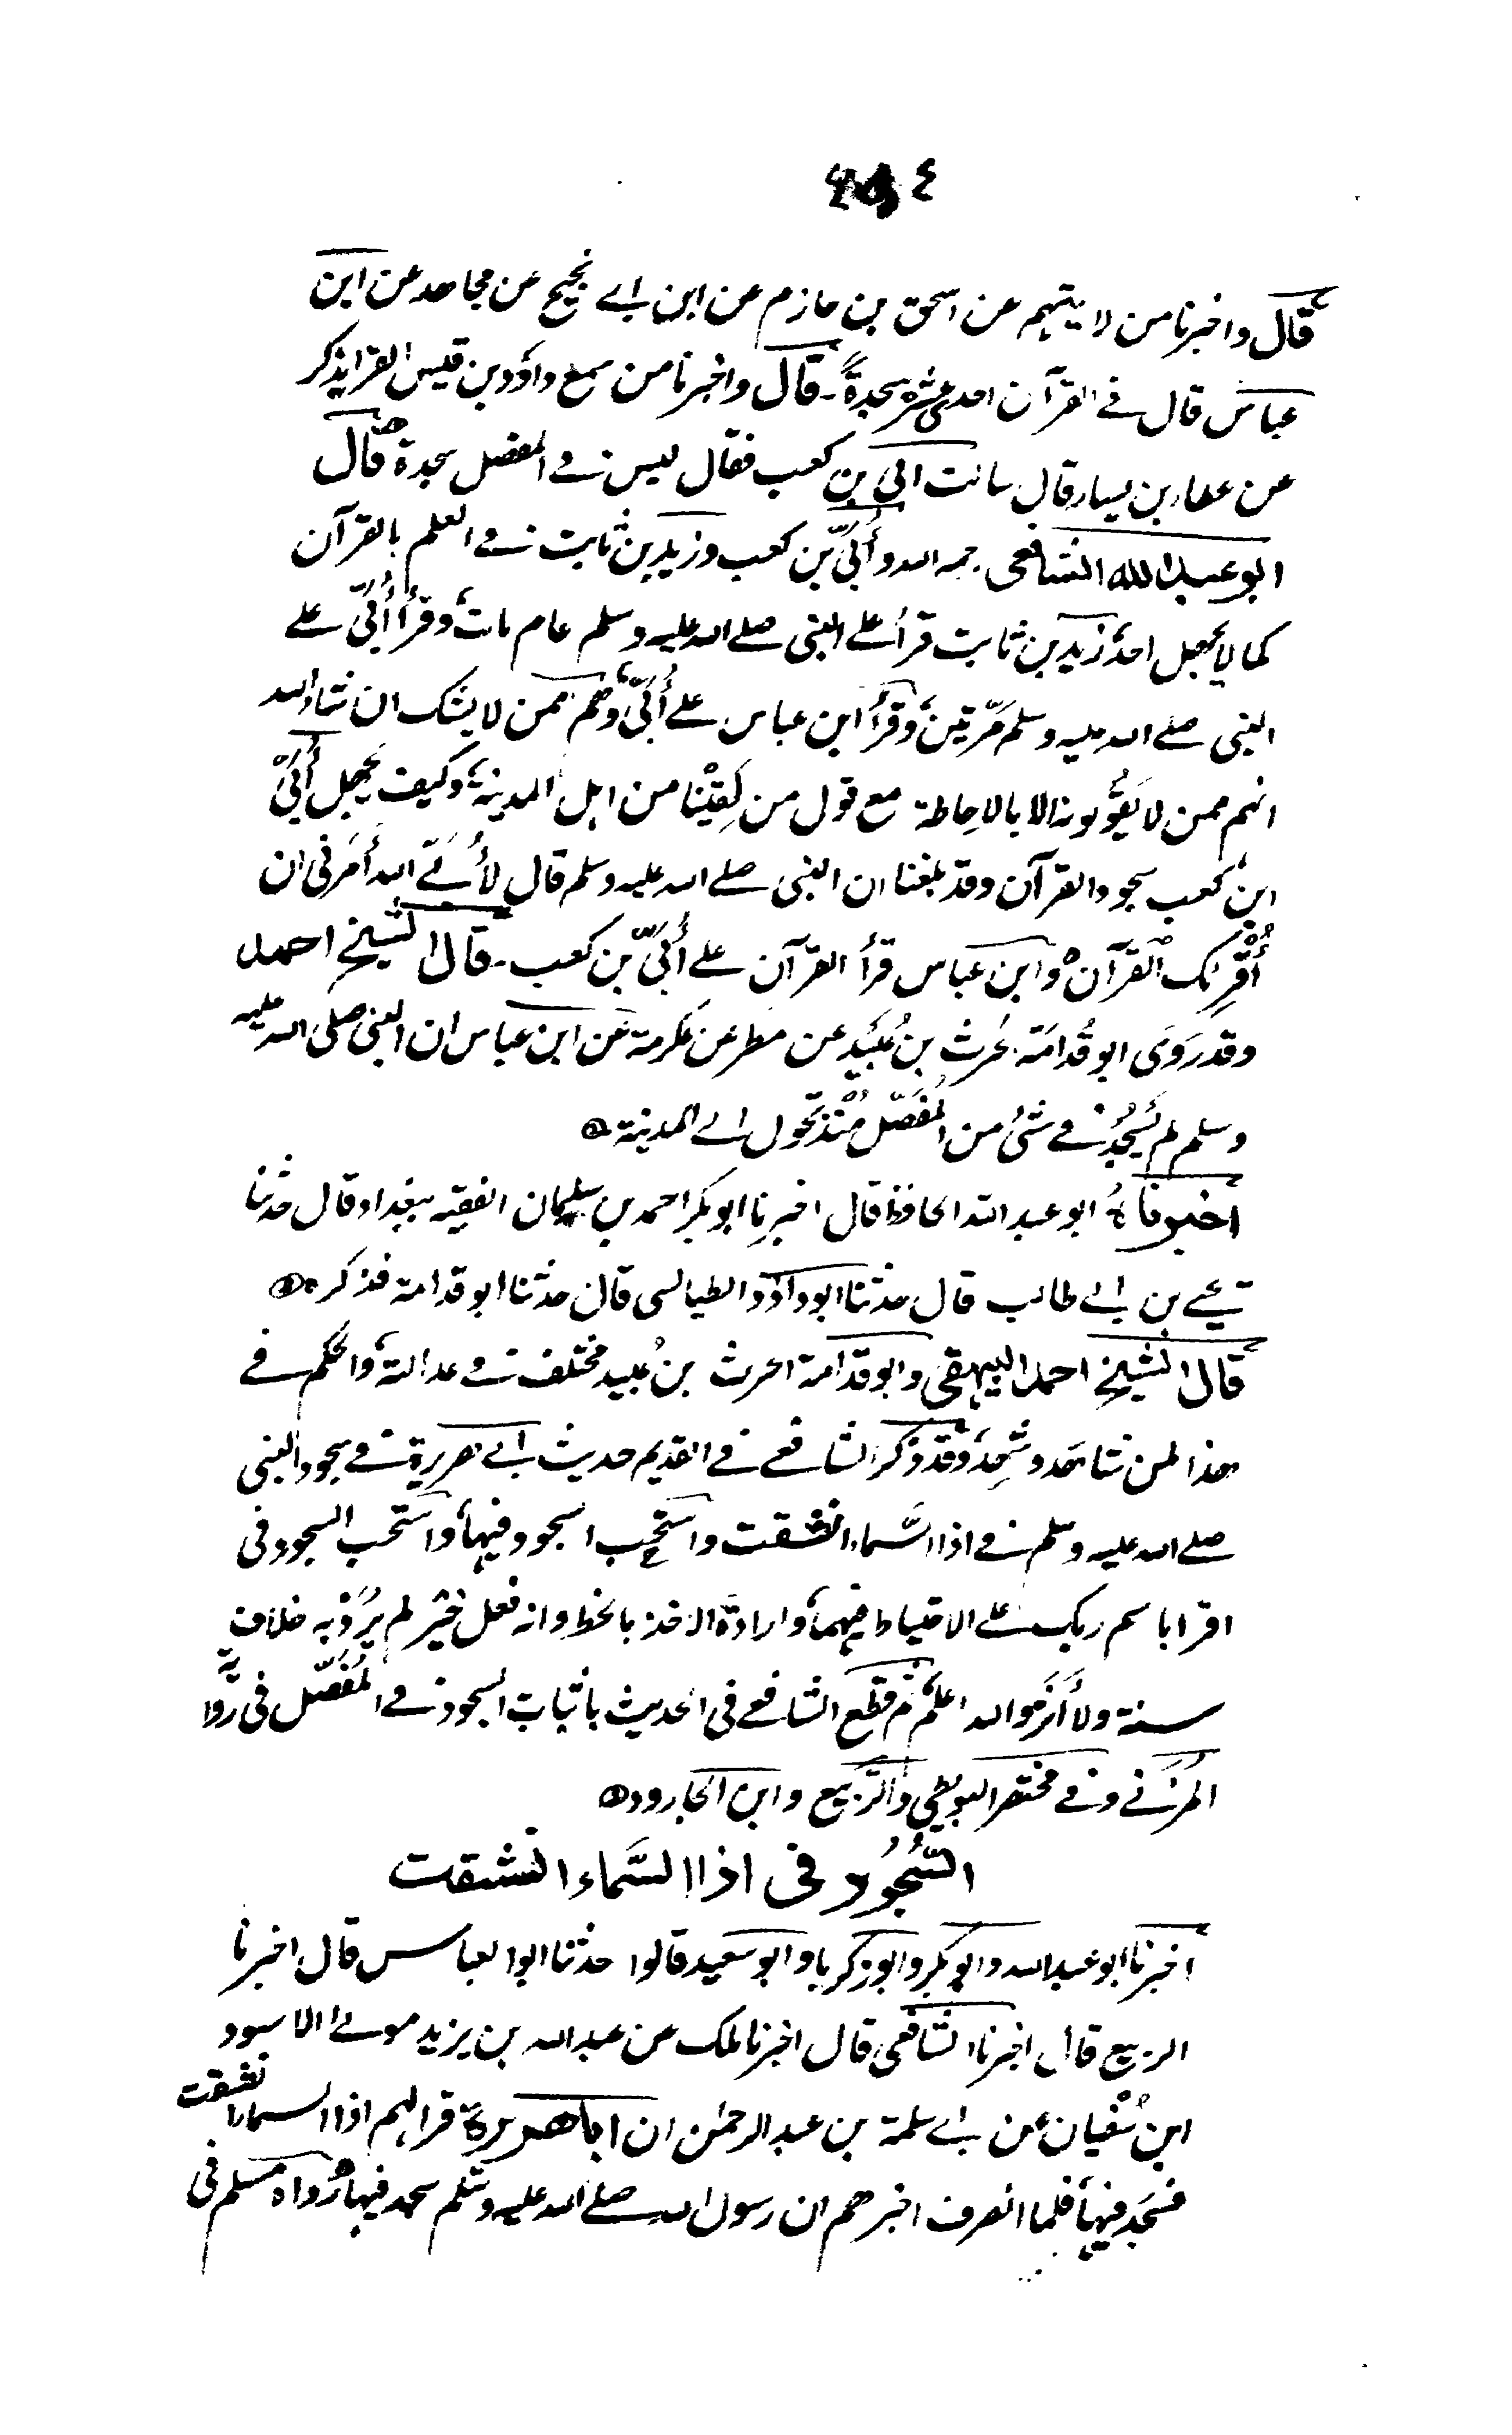 قال واخبرنا من لا يتهم عن اسحق بن حازم عن ابن ابے نجيح عن مجاهد عن ابن
عباس قال فے القرآن احدى عشرة سجدةً۔ قال واخبرنا من سمع داوٗد بن قيس الفرا يذكر
عن عطاء بن يسار قال سالت ابي بن كعب فقال ليس فے المفصل سجدة قال
ابو عبد الله الشافعی رحمه الله وأُبَيّ بن كعب وزيد بن ثابت فے العلم بالقرآن
كما لا يجهل احدٌ زيد بن ثابت قرأ علے النبی صلے الله عليه وسلم عام مات وقرأ أُبَيّ علے
النبی صلے الله عليه وسلم مرّتين وقرأ ابن عباس علے أُبَيّ وهم ممن لا يشك ان شاء الله
انهم ممن لا يقولونه الا بالاحاطة مع قول من لَقِيْنا من اهل المدينة وكيف يجهل أُبَيّ
ابن كعب سجود القرآن وقد بلغنا ان النبی صلے الله عليه وسلم قال لأُبَيّ ان الله أمَرنی ان
أُقْرِئك القرآن وابن عباس قرأ القرآن علے أُبَيّ بن كعب۔ قال الشيخ احمد
وقد رَوَى ابو قُدامَة الحرث بن عُبَيد عن مطر عن عكرمة عن ابن عباس ان النبی صلی الله عليه
وسلم لم يَسْجُدْ فے شئ من المُفَصّل مُنْذُ تحَوّل الے المدينة
اَخبرناهُ ابو عبد الله الحافظ قال اخبرنا ابو بكر احمد بن سليمان الفقيه ببغداد قال حدثنا
يحيے بن ابے طالب قال حدثنا ابو داوٗد الطيالسی قال حدثنا ابو قدامة فذكره
قال الشيخ احمد البيهقی وابو قدامة الحرث بن عُبيد مختلف فے عدالته والحكم فے
هذا لمن شاهَد وشهد وقد ذكر الشافعے فے القديم حديث ابے هريرة فے سجود النبی
صلے الله عليه وسلم فے اذا السَّماء انشقت واستحب السجود فيها واستحب السجود فی
اقرا باسم ربك علے الاحتياط فيهما وارادة الاخذ بالحظ وانه فعل خير لم يرد به خلاف
سنة ولا أثر والله اعلم ثم قطع الشافعے فی الحديث باثبات السجود فے المُفَصّل فی رواية
المزنے وفے مختصر البويطی والربيع وابن الجارود
السُّجُود فی اذا السَّماء انشقت
اَخبرنا ابو عبد الله وابو بكر وابو زكريا وابو سعيد قالوا حدثنا ابو العباس قال اخبرنا
الربيع قال اخبرنا الشافعی قال اخبرنا ملك عن عبد الله بن يزيد مولے الاسود
ابن سُفيان عن ابے سلمة بن عبد الرحمٰن ان ابا هريرة قرا لهم اذا السماء انشقت
فسَجَد فيها فلما انصرف اخبرهم ان رسول الله صلے الله عليه وسلم سجد فيها رواه مسلم فی